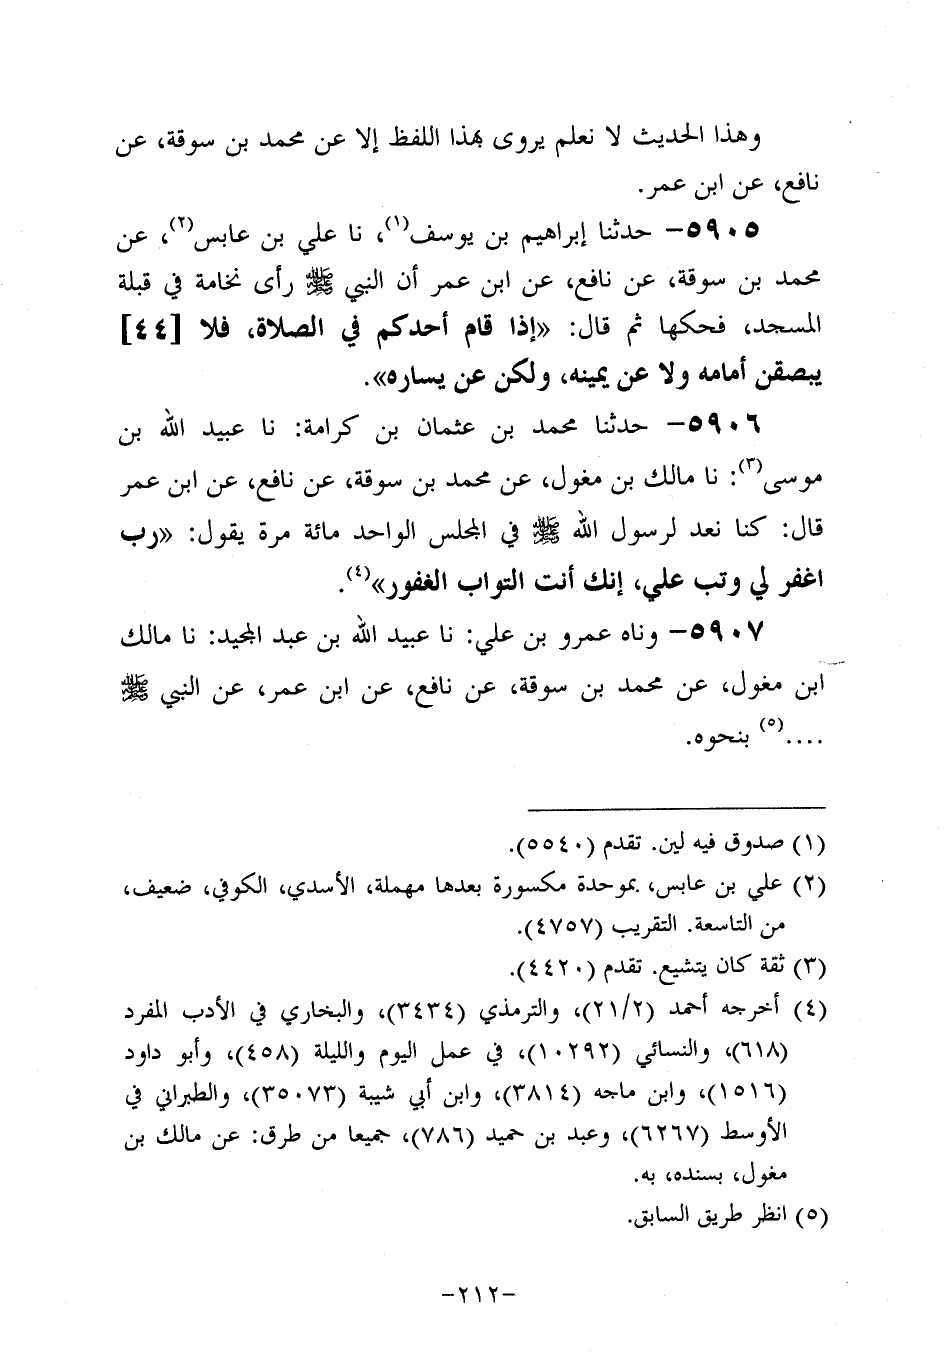 وهذا الحديث لا نعلم يروى بهذا اللفظ إلا عن محمد بن سوقة، عن
نافع، عن ابن عمر.
٥٩٠٥– حدثنا إبراهيم بن يوسف(١)، نا علي بن عابس(٢)، عن
محمد بن سوقة، عن نافع، عن ابن عمر أن النبي ﷺ رأى نخامة في قبلة
المسجد، فحكها ثم قال: «إذا قام أحدكم في الصلاة، فلا [٤٤]
يبصقن أمامه ولا عن يمينه، ولكن عن يساره».
٥٩٠٦– حدثنا محمد بن عثمان بن كرامة: نا عبيد الله بن
موسى(٣): نا مالك بن مغول، عن محمد بن سوقة، عن نافع، عن ابن عمر
قال: كنا نعد لرسول الله ﷺ في المجلس الواحد مائة مرة يقول: «رب
اغفر لي وتب علي، إنك أنت التواب الغفور»(٤).
٥٩٠٧– وناه عمرو بن علي: نا عبيد الله بن عبد المجيد: نا مالك
ابن مغول، عن محمد بن سوقة، عن نافع، عن ابن عمر، عن النبي ﷺ
....(٥) بنحوه.
(١) صدوق فيه لين. تقدم (٥٥٤٠).
(٢) علي بن عابس، بموحدة مكسورة بعدها مهملة، الأسدي، الكوفي، ضعيف،
من التاسعة. التقريب (٤٧٥٧).
(٣) ثقة كان يتشيع. تقدم (٤٤٢٠).
(٤) أخرجه أحمد (٢١/٢)، والترمذي (٣٤٣٤)، والبخاري في الأدب المفرد
(٦١٨)، والنسائي (١٠٢٩٢)، في عمل اليوم والليلة (٤٥٨)، وأبو داود
(١٥١٦)، وابن ماجه (٣٨١٤)، وابن أبي شيبة (٣٥٠٧٣)، والطبراني في
الأوسط (٦٢٦٧)، وعبد بن حميد (٧٨٦)، جميعا من طرق: عن مالك بن
مغول، بسنده، به.
(٥) انظر طريق السابق.
–٢١٢–